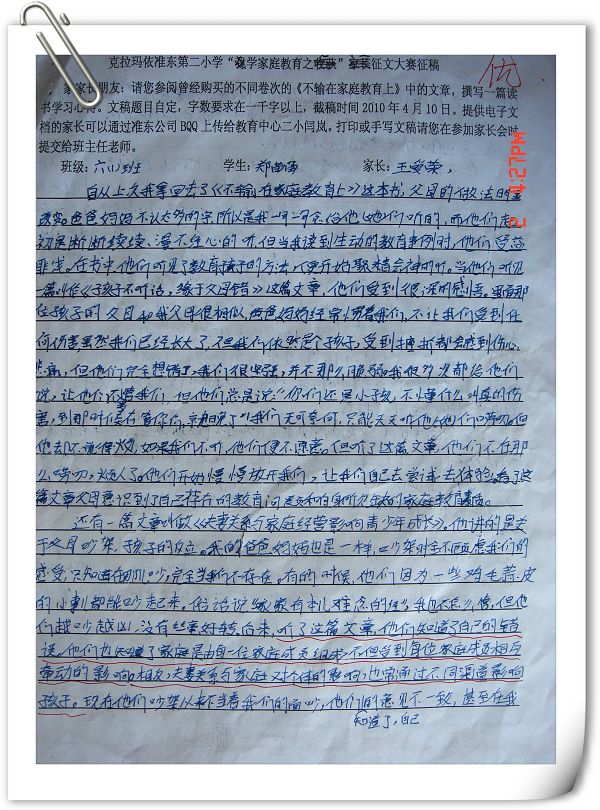 克拉玛依准东第二小学“爱学家庭教育之收获”家长征文大赛征稿
优
家长朋友：请您参阅曾经购买的不同卷次的《不输在家庭教育上》中的文章，撰写一篇读
书学习心得。文稿题目自定，字数要求在一千字以上，截稿时间2010年4月10日。提供电子文
档的家长可以通过准东公司BQQ上传给教育中心二小闫岚。打印或手写文稿请您在参加家长会时
提交给班主任老师。
班级：六(1)班 学生：郑 家长：王爱荣
自从上次我拿回去了《不输在家庭教育上》这本书，父母的做法明显
改变。爸爸妈妈不认太多的字所以是我一句一句念给他(她)们听的，而他们起
初是断断续续、漫不经心的听，但当我读到生动的教育事例时，他们受益
非浅。在书中他们听见了教育孩子的方法，便开始聚精会神的听。当他们听见
一篇《孩子不听话，缘于父母错》这篇文章，他们受到很深的感悟。里面那
位孩子的父母和我父母很相似，爸爸妈妈经常惯着我们，不让我们受到任
何伤害虽然我们已经长大了，但我们依然是个孩子，受到挫折都会感到伤心、
悲痛，但他们完全想错了，我们很坚强，并不那么脆弱，我很多次都给他们
说，让他们不惯我们，但他们总是说：“你们还是小孩，不懂什么叫真的伤
害，到那时候在管你们，就晚了”我们无可奈何，只能天天听他(她)们唠叨。但
他去却不说得烦，如果我们不听，他们便不愿意。但听了这篇文章，他们不在那
么唠叨，烦人了。他们开始慢慢放开我们，让我们自己去尝试、去体验，看了这
篇文章父母意识到了自己存在的教育问题和自身所欠缺的家庭教育素质。
还有一篇文章叫做《夫妻关系与家庭经营影响青少年成长》，他讲的是关
于父母吵架，孩子的自立。我的爸爸妈妈也是一样，吵架时全不顾虑我们的
感受，只知道在那儿吵，完全当我们不存在。有的时候，他们因为一些鸡毛蒜皮
的小事都能吵起来，俗话说“家家有本难念的经”我也不怎么懂，但他
们越吵越凶，没有丝毫好转后来，听了这篇文章，他们知道了自己的错
误，他们也知道了家庭是由每一位家庭成员组成，不但受到每位家庭成员相互
牵动的影响，相反，夫妻关系与家庭对个体的影响，也常通过不同渠道影响
孩子。现在他们吵架从不当着我们的面吵，他们的意见不一致，甚至在我
知道了，自己
2 4:27PM